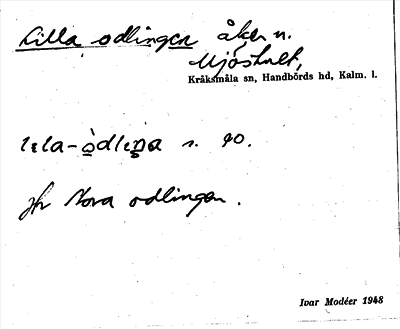 Lilla odlingen åker n.
Mjöshult,
Kråksmåla sn, Handbörds hd, Kalm. l.
90.
Jfr Stora odlingen.
Ivar Modéer 1948